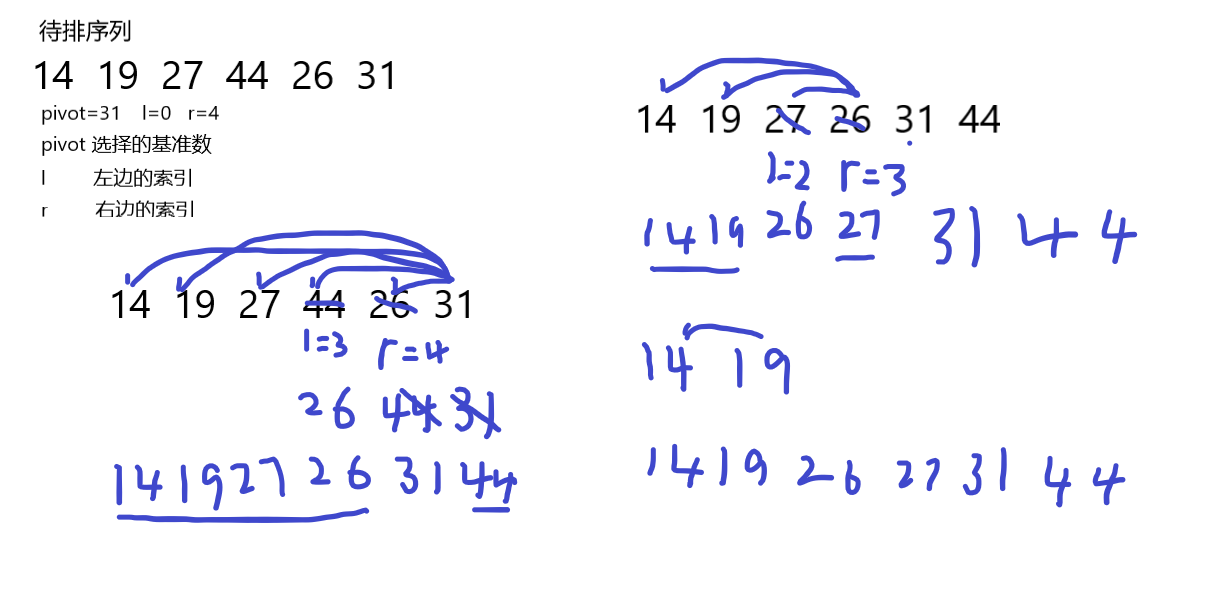 待排序列
14 19 27 44 26 31
pivot=31 l=0 r=4
pivot 选择的基准数
l 左边的索引
r 右边的索引
14 19 27 44 26 31
l=3 r=4
26 44 31
14 19 27 26 31 44
14 19 27 26 31 44
l=2 r=3
14 19 26 27 31 44
14 19
14 19 26 27 31 44